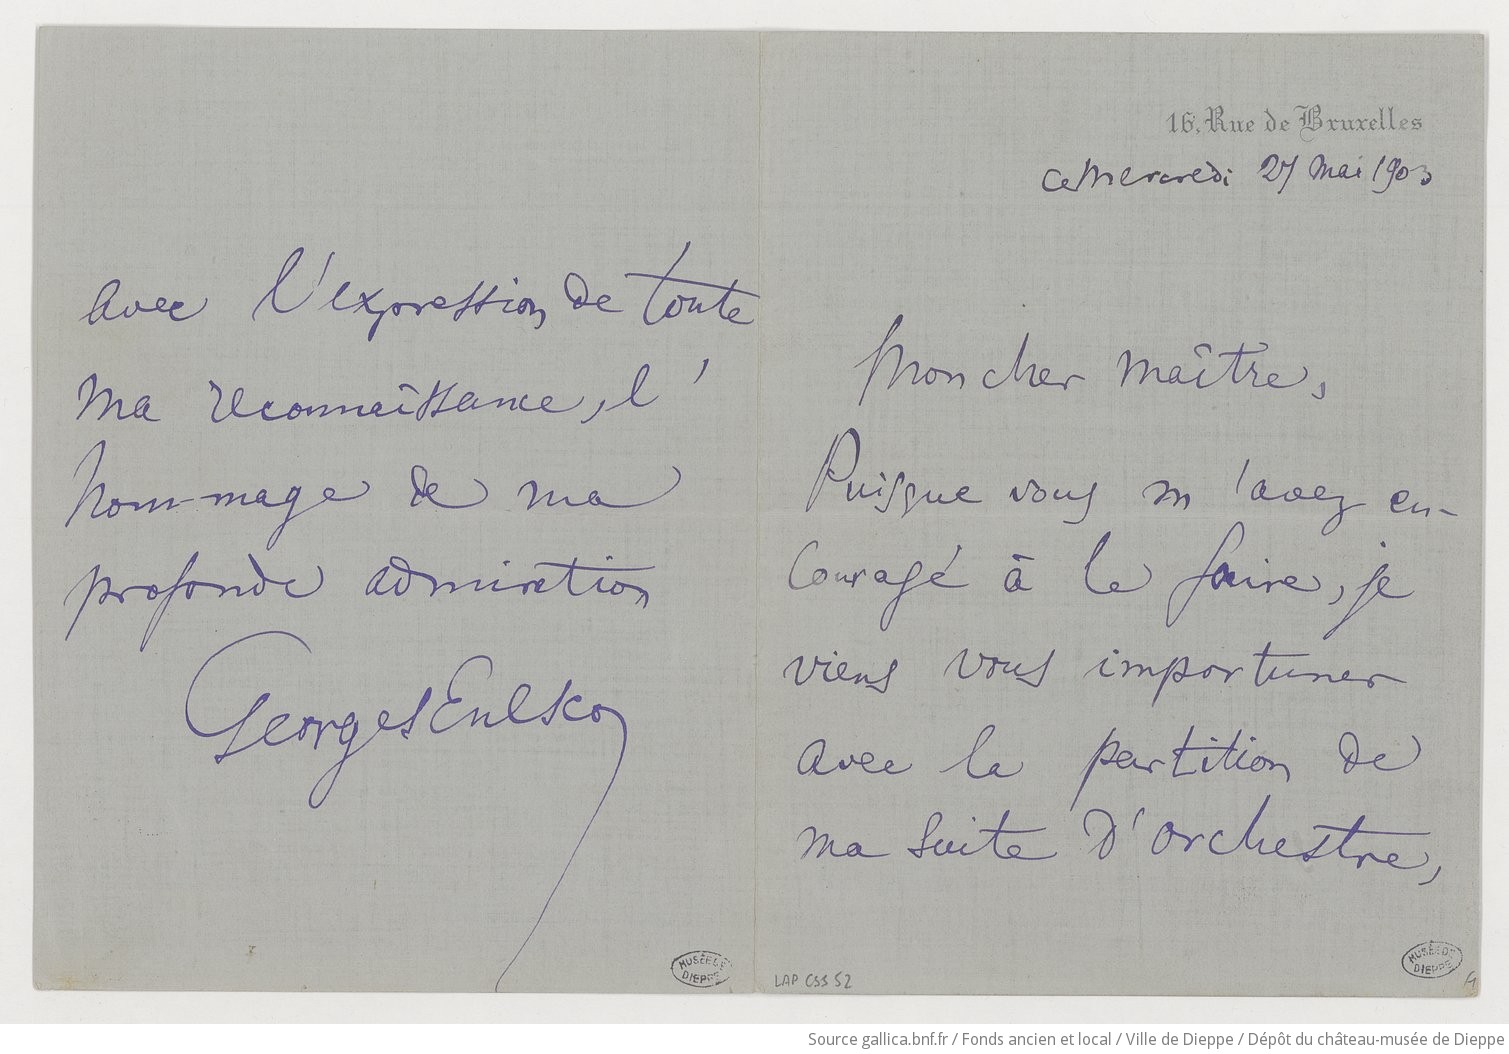 16, Rue de Bruxelles
Ce Mercredi 27 Mai 1903
Mon cher Maître,
Puisque vous m'avez en-
couragé à le faire, je
viens vous importuner
avec la partition de
ma Suite d'orchestre,
avec l'expression de toute
ma reconnaissance, l'
hommage de ma
profonde admiration
Georges Enesco
MUSÉE DE DIEPPE
LAP CSS 52
MUSÉE DE DIEPPE
Source gallica.bnf.fr / Fonds ancien et local / Ville de Dieppe / Dépôt du château-musée de Dieppe